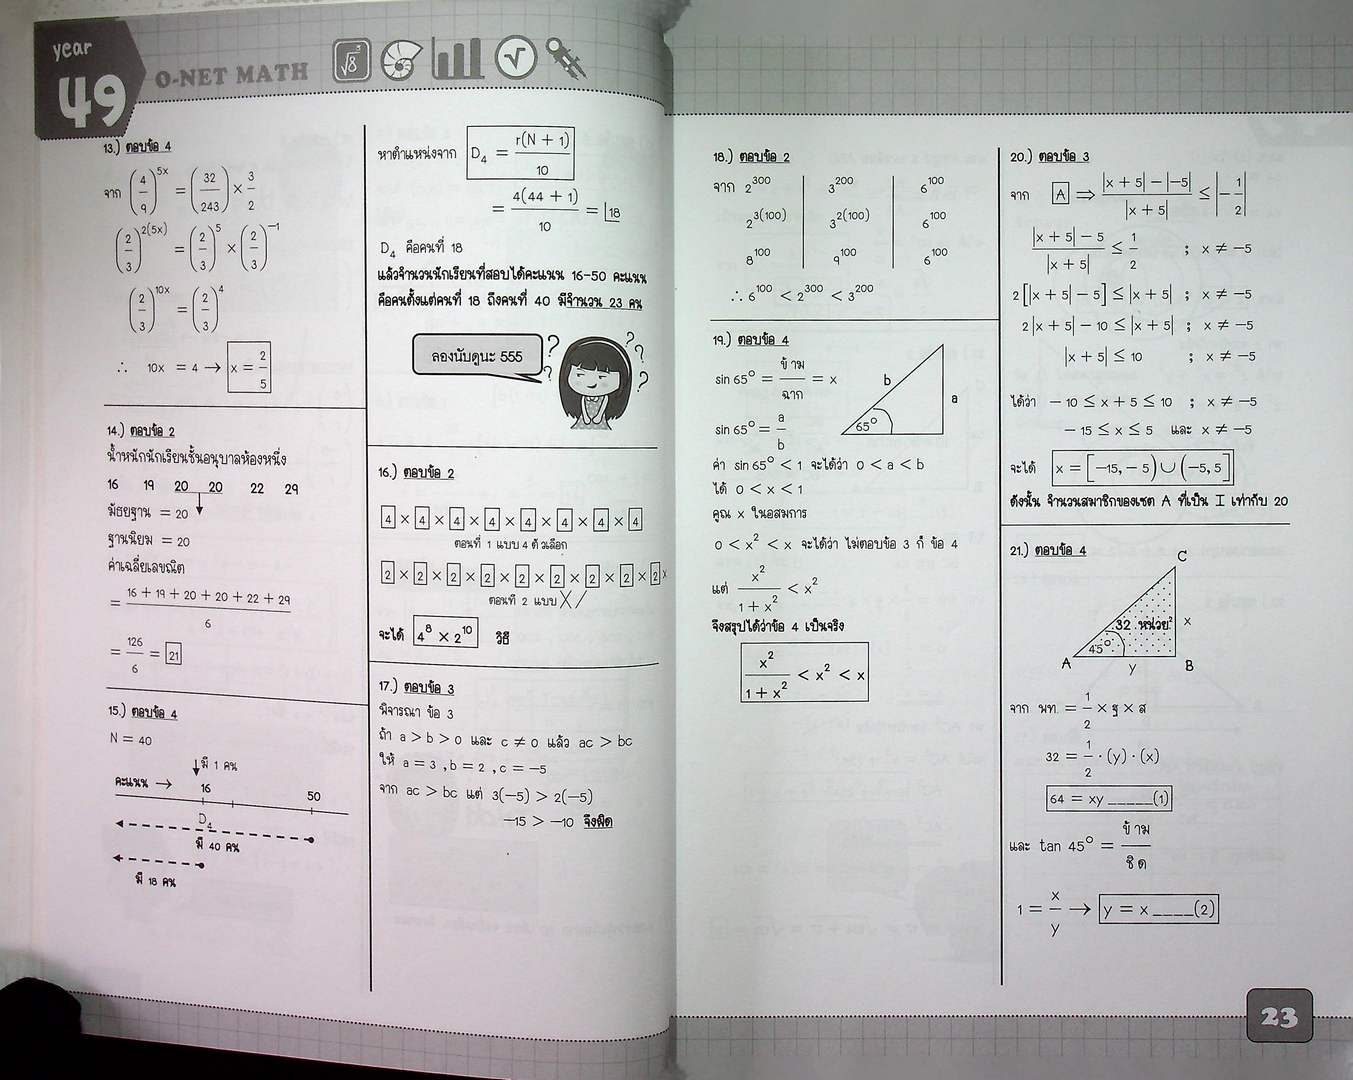 year
49
O-NET MATH
13.) ตอบข้อ 4
จาก (4/9)^5x = (32/243) × 3/2
(2/3)^2(5x) = (2/3)^5 × (2/3)^-1
(2/3)^10x = (2/3)^4
∴ 10x = 4 → x = 2/5
14.) ตอบข้อ 2
น้ำหนักนักเรียนชั้นอนุบาลห้องหนึ่ง
16 19 20 20 22 29
มัธยฐาน = 20
ฐานนิยม = 20
ค่าเฉลี่ยเลขณิต
= (16 + 19 + 20 + 20 + 22 + 29)/6
= 126/6 = 21
15.) ตอบข้อ 4
N = 40
มี 1 คน
คะแนน → 16 50
D4
มี 40 คน
มี 18 คน
หาตำแหน่งจาก D4 = r(N + 1)/10
= 4(44 + 1)/10 = 18
D4 คือคนที่ 18
แล้วจำนวนนักเรียนที่สอบได้คะแนน 16-50 คะแนน
คือคนตั้งแต่คนที่ 18 ถึงคนที่ 40 มีจำนวน 23 คน
ลองนับดูนะ 555
? ? ? ? ?
16.) ตอบข้อ 2
4 × 4 × 4 × 4 × 4 × 4 × 4 × 4
ตอนที่ 1 แบบ 4 ตัวเลือก
2 × 2 × 2 × 2 × 2 × 2 × 2 × 2 × 2 ×
ตอนที่ 2 แบบ X /
จะได้ 4^8 × 2^10 วิธี
17.) ตอบข้อ 3
พิจารณา ข้อ 3
ถ้า a > b > 0 และ c ≠ 0 แล้ว ac > bc
ให้ a = 3 , b = 2 , c = -5
จาก ac > bc แต่ 3(-5) > 2(-5)
-15 > -10 จึงผิด
18.) ตอบข้อ 2
จาก 2^300 3^200 6^100
2^3(100) 3^2(100) 6^100
8^100 9^100 6^100
∴ 6^100 < 2^300 < 3^200
19.) ตอบข้อ 4
sin 65° = ข้าม/ฉาก = x
sin 65° = a/b
b
a
65°
ค่า sin 65° < 1 จะได้ว่า 0 < a < b
ได้ 0 < x < 1
คูณ x ในอสมการ
0 < x^2 < x จะได้ว่า ไม่ตอบข้อ 3 ก็ ข้อ 4
แต่ x^2/(1 + x^2) < x^2
จึงสรุปได้ว่าข้อ 4 เป็นจริง
x^2/(1 + x^2) < x^2 < x
20.) ตอบข้อ 3
จาก A ⇒ (|x + 5| - |-5|)/|x + 5| ≤ |-1/2|
(|x + 5| - 5)/|x + 5| ≤ 1/2 ; x ≠ -5
2[|x + 5| - 5] ≤ |x + 5| ; x ≠ -5
2|x + 5| - 10 ≤ |x + 5| ; x ≠ -5
|x + 5| ≤ 10 ; x ≠ -5
ได้ว่า -10 ≤ x + 5 ≤ 10 ; x ≠ -5
-15 ≤ x ≤ 5 และ x ≠ -5
จะได้ x = [-15, -5) ∪ (-5, 5]
ดังนั้น จำนวนสมาชิกของเซต A ที่เป็น I เท่ากับ 20
21.) ตอบข้อ 4
C
32 หน่วย²
x
45°
A
y
B
จาก พท. = 1/2 × ฐ × ส
32 = 1/2 · (y) · (x)
64 = xy _____(1)
และ tan 45° = ข้าม/ชิด
1 = x/y → y = x ____(2)
23